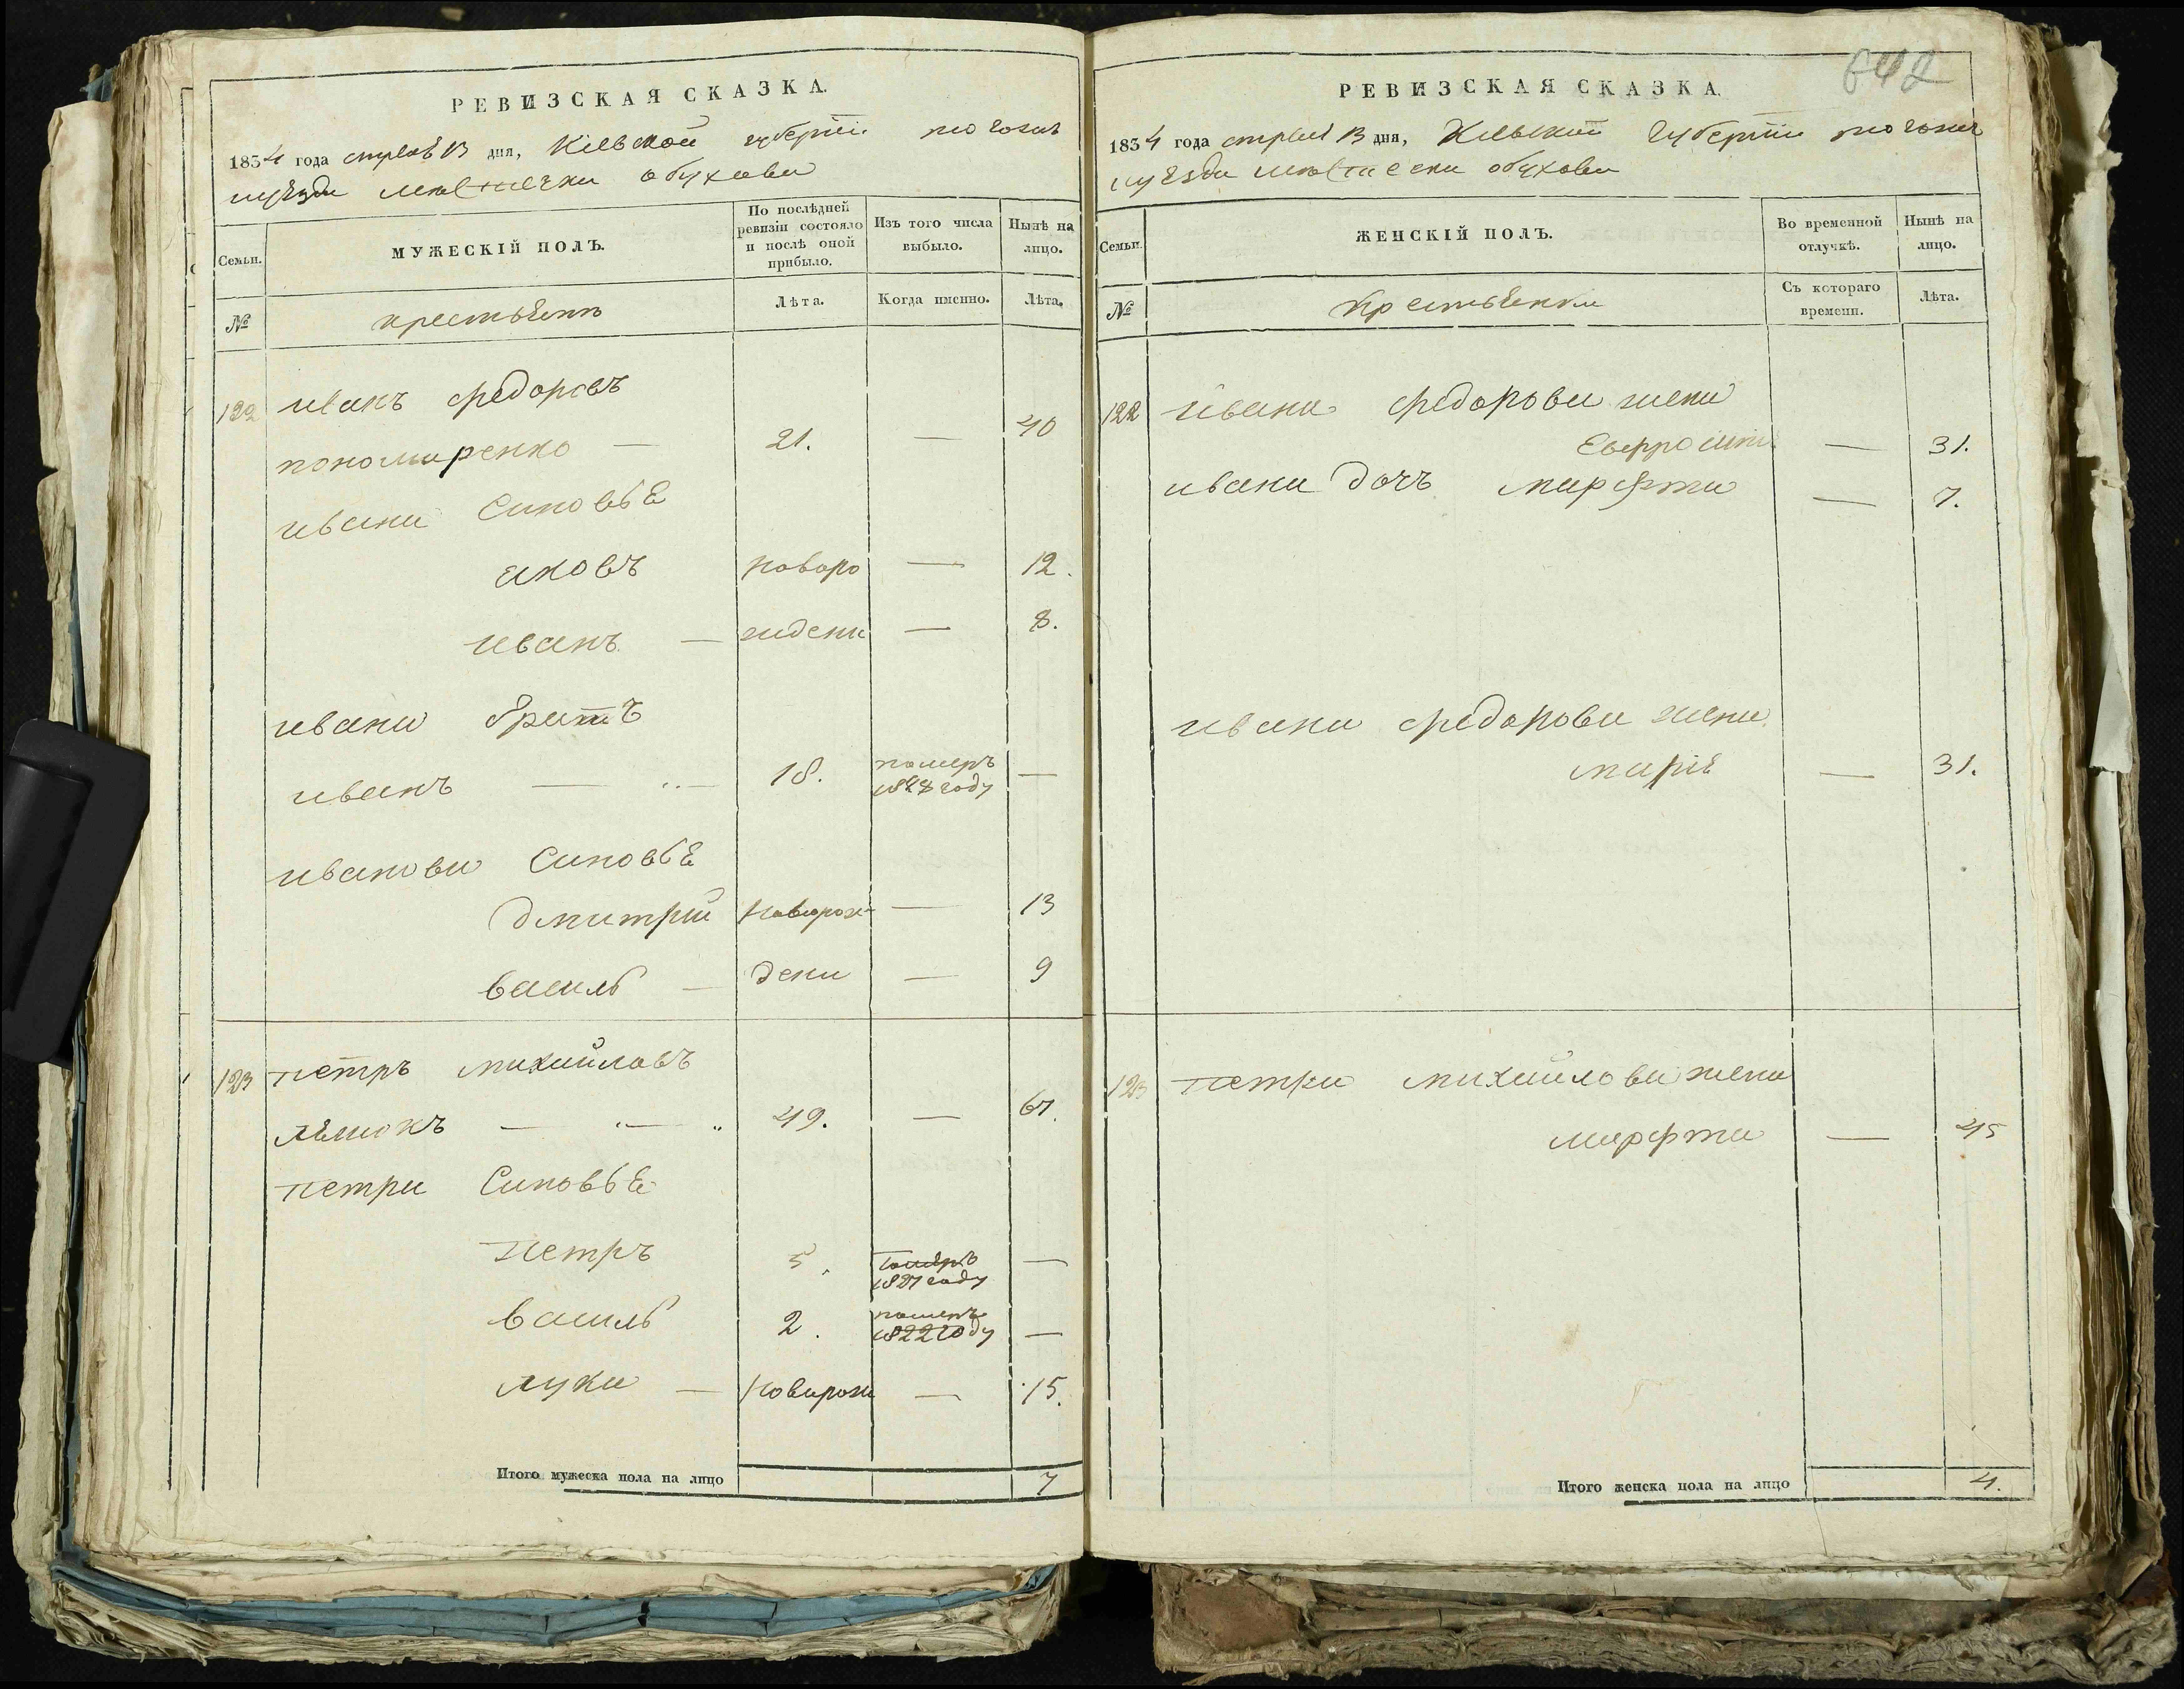 РЕВИЗСКАЯ СКАЗКА.
1834 года дня, Кіевской губерніи того жъ
уѣзда мѣстечка обухова
Семьи.
МУЖЕСКІЙ ПОЛЪ.
По послѣдней ревизіи состояло и послѣ оной прибыло.
Изъ того числа выбыло.
Нынѣ на лицо.
№
крестьѣнъ
Лѣта.
Когда именно.
Лѣта.
122 иванъ федоровъ
пономаренко — 21. — 40
ивана Синовьѣ
аковъ новоро — 12.
иванъ — ждени — 8.
ивана братъ
иванъ — 18. померъ 1828 году —
иванова Синовьѣ
дмитрий Новорож — 13
василь — дени — 9
123 петръ михайловъ
— 49. —
петра Синовьѣ
петръ 5. 1827 году —
василь 2. померъ 1822 году —
лука — Новорож — 15.
Итого мужеска пола на лицо 7
642
РЕВИЗСКАЯ СКАЗКА.
1834 года дня, Кіевской Губерніи того жъ
уѣзда обухова
Семьи.
ЖЕНСКІЙ ПОЛЪ.
Во временной отлучкѣ.
Нынѣ на лицо.
№
Крестьѣнки
Съ котораго времени.
Лѣта.
122 ивана федорова жена
— 31.
ивана дочъ марфта — 7.
ивана федорова жена
маріѣ — 31.
123 петра михайлова жена
марфта — 45
Итого женска пола на лицо 4.